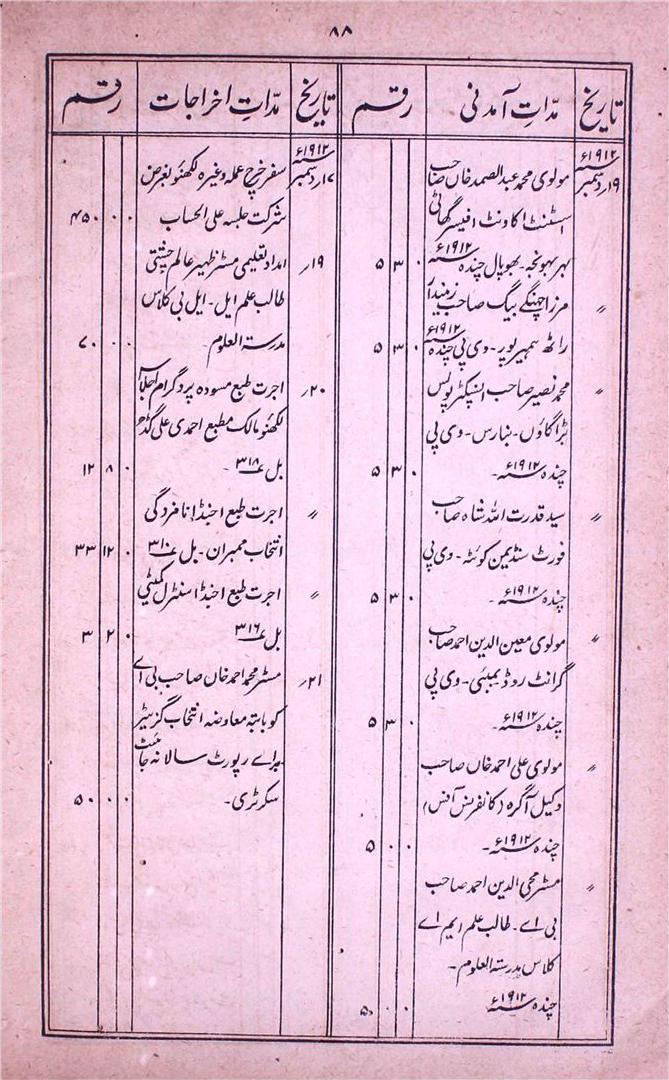 ۸۸
تاریخ مدّاتِ آمدنی رقم
۱۹؍دسمبر ۱۹۱۲ء مولوی محمد عبدالصمد خاں صاحب
اسسٹنٹ اکاونٹ افیسر گھاٹی
بھوپال چندہ ۱۹۱۲ء ۵ ۳ ۰
〃 مرزا چھنگے بیگ صاحب زمیندار
راٹھ ہمیرپور۔ وی پی چندہ ۱۹۱۲ء ۵ ۳ ۰
〃 محمد نصیر صاحب انسپکٹر پولس
بڑاگاؤں۔ بنارس۔ وی پی
چندہ ۱۹۱۲ء۔ ۵ ۳ ۰
〃 سید قدرت اللہ شاہ صاحب
فورٹ سنڈیمن کوئٹہ۔ وی پی
چندہ ۱۹۱۲ء۔ ۵ ۳ ۰
〃 مولوی معین الدین احمد صاحب
گرانٹ روڈ بمبئی۔ وی پی
چندہ ۱۹۱۲ء۔ ۵ ۳ ۰
〃 مولوی علی احمد خاں صاحب
وکیل آگرہ (کانفرنس آفس)
چندہ ۱۹۱۲ء۔ ۵ ۰ ۰
〃 مسٹر محی الدین احمد صاحب
بی اے۔ طالب علم ایم اے
کلاس مدرستہ العلوم۔
چندہ ۱۹۱۲ء ۵ ۰ ۰
تاریخ مدّاتِ اخراجات رقم
۱۷؍دسمبر ۱۹۱۲ء سفر خرچ عملہ وغیرہ لکھنؤ بغرض
شرکت جلسہ علی الحساب ۴۵۰ ۰ ۰
۱۹؍ امداد تعلیمی مسٹر ظہیر عالم چشتی
طالب علم ایل۔ ایل بی کلاس
مدرستہ العلوم۔ ۷۰ ۰ ۰
۲۰؍ اجرت طبع مسودہ پروگرام اجلاس
لکھنؤ مالک مطبع احمدی علی گڈھ
بل ۳۱۸۔ ۱۲ ۸ ۰
〃 اجرت طبع اجنڈا نامزدگی
انتخاب ممبران۔ بل ۳۱۰ ۳۳ ۱۲ ۰
〃 اجرت طبع اجنڈا سنٹرل کمیٹی
بل ۳۱۶ ۳ ۲ ۰
۲۱؍ مسٹر محمد احمد خاں صاحب بی اے
کو بابتہ معاوضہ انتخاب گزیٹیر
براے رپورٹ سالانہ جائنٹ
سکرٹری۔ ۵۰ ۰ ۰